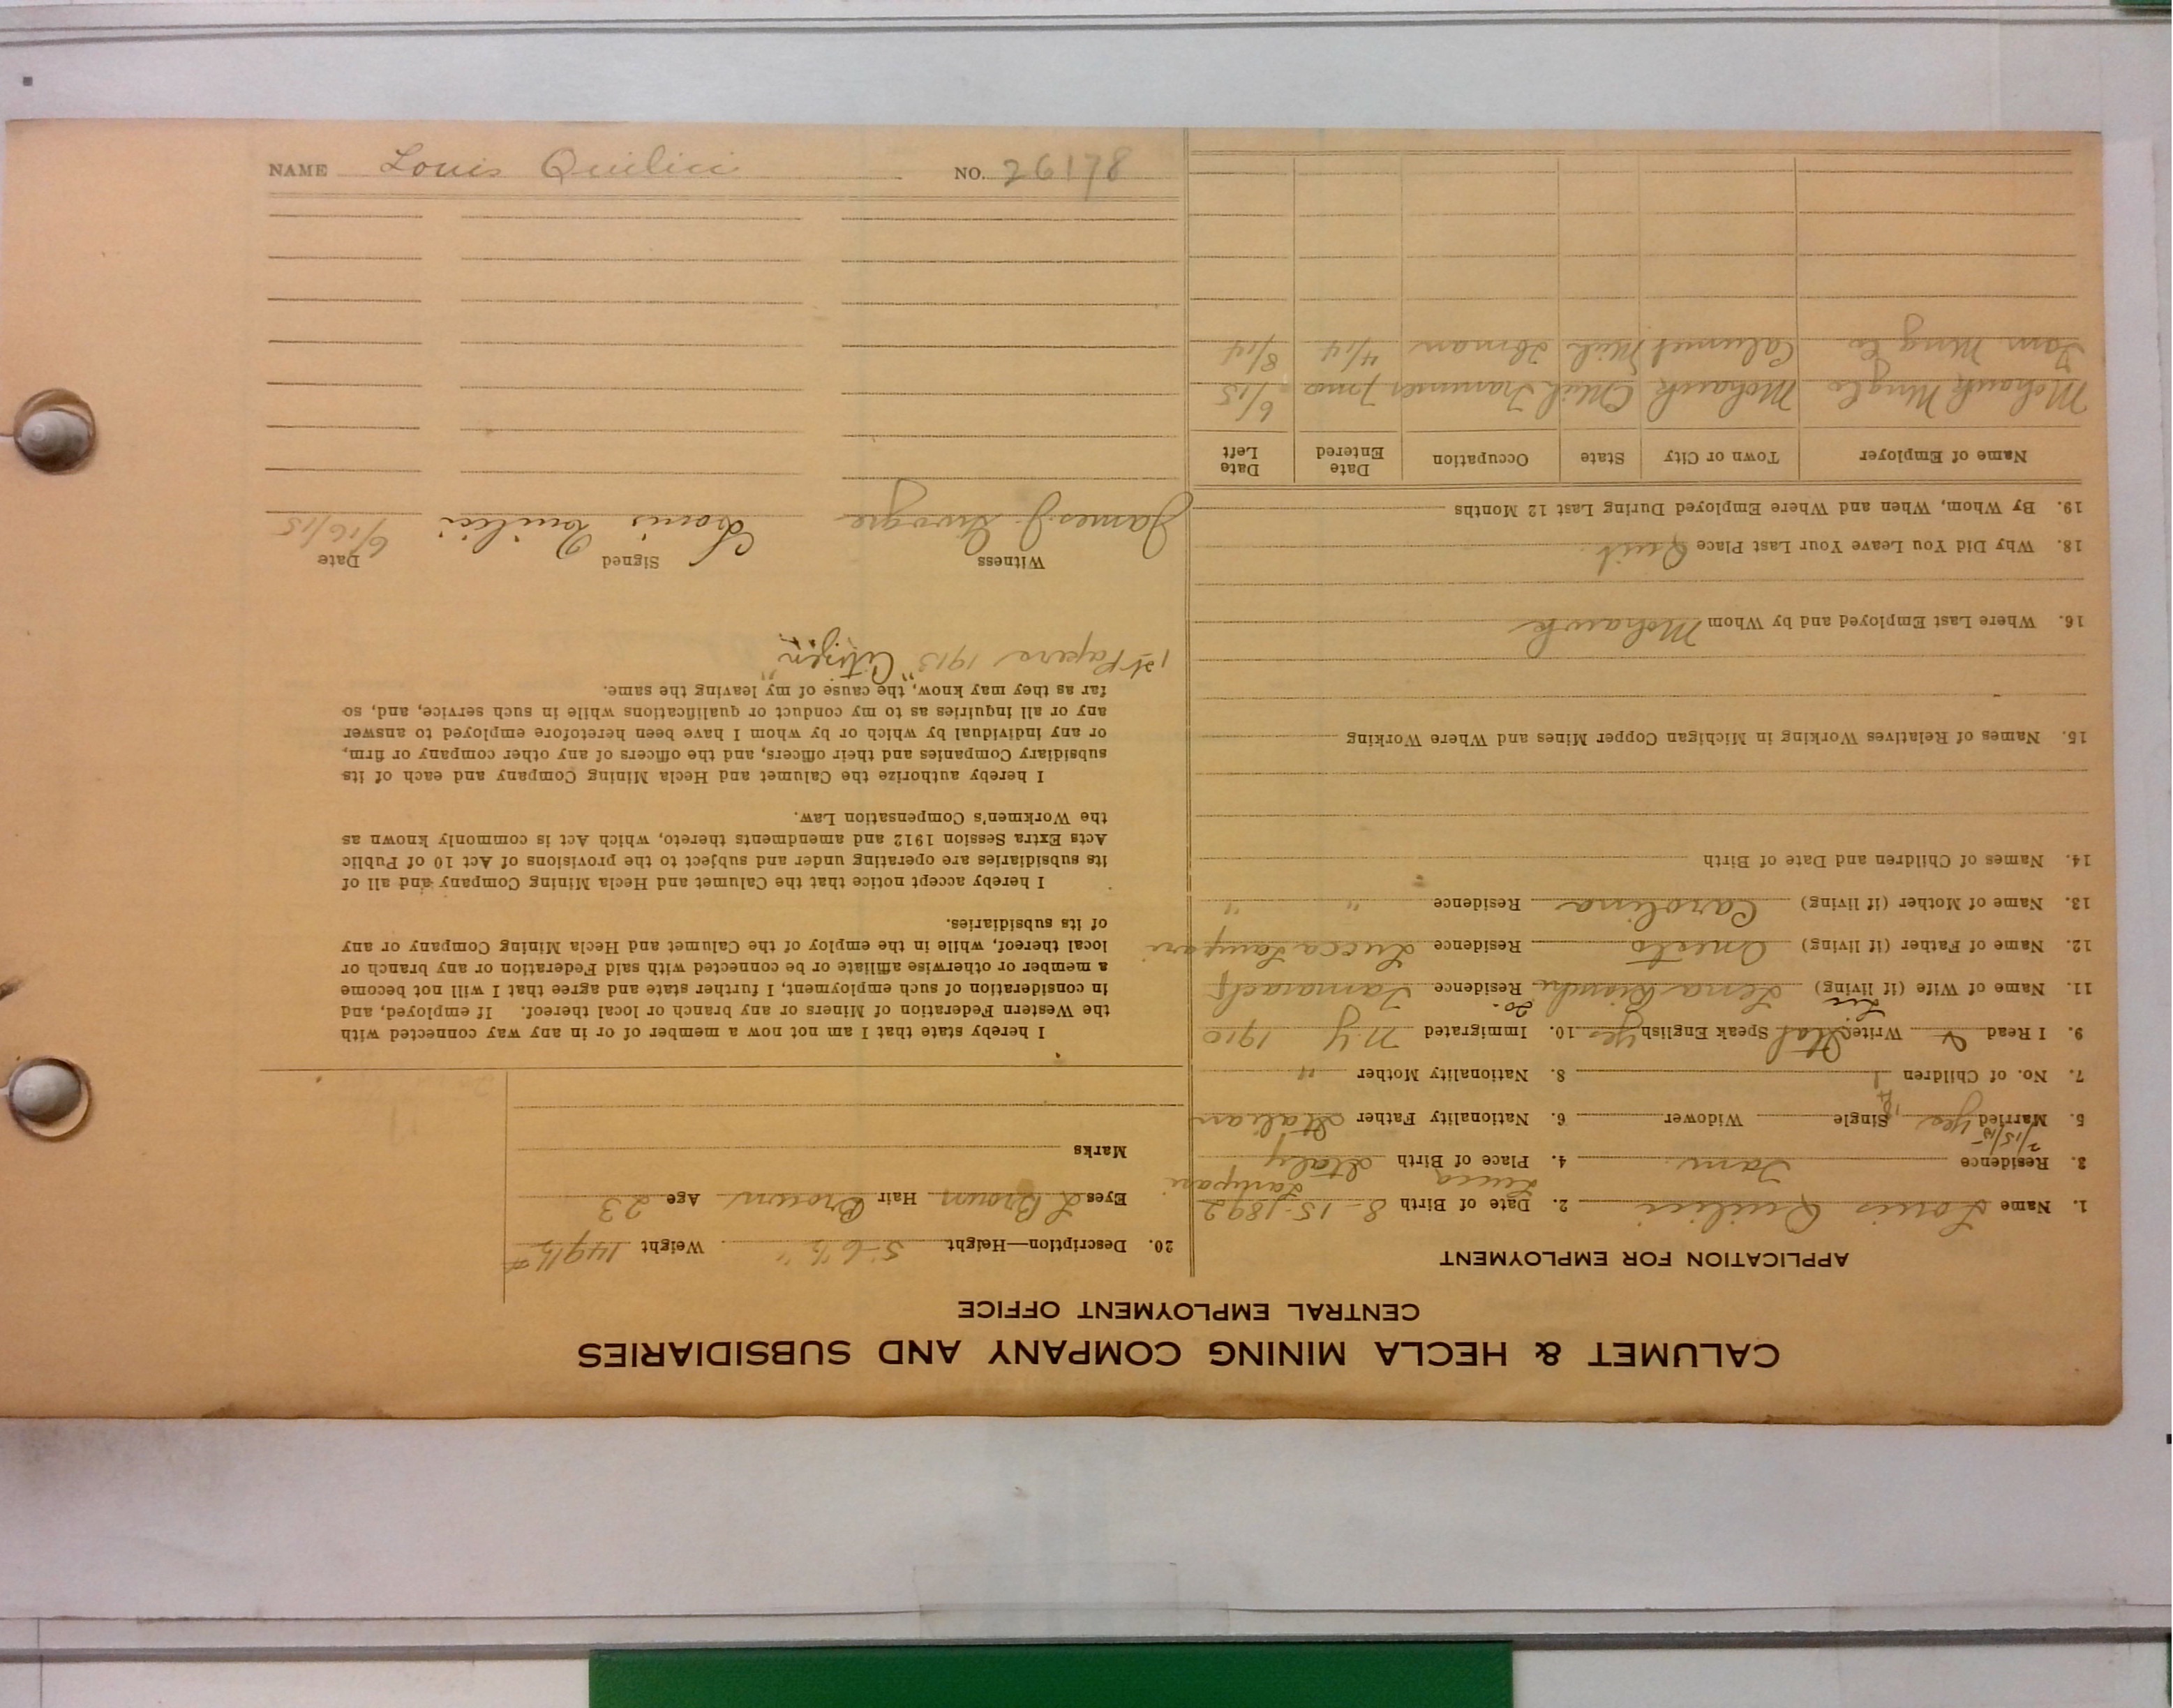 NAME Louis Quilici NO. 26178
CALUMET & HECLA MINING COMPANY AND SUBSIDIARIES
CENTRAL EMPLOYMENT OFFICE
APPLICATION FOR EMPLOYMENT
1. Name Louis Quilici 2. Date of Birth 8-15-1892
Lucca
3. Residence Tam. 4. Place of Birth Italy
2/15/15
5. Married yes Single Widower 6. Nationality Father Italian
7. No. of Children 1 8. Nationality Mother "
9. I Read Write Ital Speak English yes 10. Immigrated N.Y 1910
11. Name of Wife (if living) Lena Bianchi Residence Tamarack
12. Name of Father (if living) Onesto Residence Lucca
13. Name of Mother (if living) Carolina Residence " "
14. Names of Children and Date of Birth
15. Names of Relatives Working in Michigan Copper Mines and Where Working
16. Where Last Employed and by Whom Mohawk
18. Why Did You Leave Your Last Place Quit
19. By Whom, When and Where Employed During Last 12 Months
Name of Employer Town or City State Occupation Date Entered Date Left
Mohawk Mng Co Mohawk Mich Trammer 7 mos 6/15
Tam Mng Co. Calumet Mich 4/14 8/14
20. Description—Height 5-6½" Weight 149½#
Eyes L Brown Hair Brown Age 23
Marks
I hereby state that I am not now a member of or in any way connected with
the Western Federation of Miners or any branch or local thereof. If employed, and
in consideration of such employment, I further state and agree that I will not become
a member or otherwise affiliate or be connected with said Federation or any branch or
local thereof, while in the employ of the Calumet and Hecla Mining Company or any
of its subsidiaries.
I hereby accept notice that the Calumet and Hecla Mining Company and all of
its subsidiaries are operating under and subject to the provisions of Act 10 of Public
Acts Extra Session 1912 and amendments thereto, which Act is commonly known as
the Workmen's Compensation Law.
I hereby authorize the Calumet and Hecla Mining Company and each of its
subsidiary Companies and their officers, and the officers of any other company or firm,
or any individual by which or by whom I have been heretofore employed to answer
any or all inquiries as to my conduct or qualifications while in such service, and, so
far as they may know, the cause of my leaving the same.
1st Papers 1913 "Citizen"
Witness Signed Date
James J. Louis Quilici 6/16/15